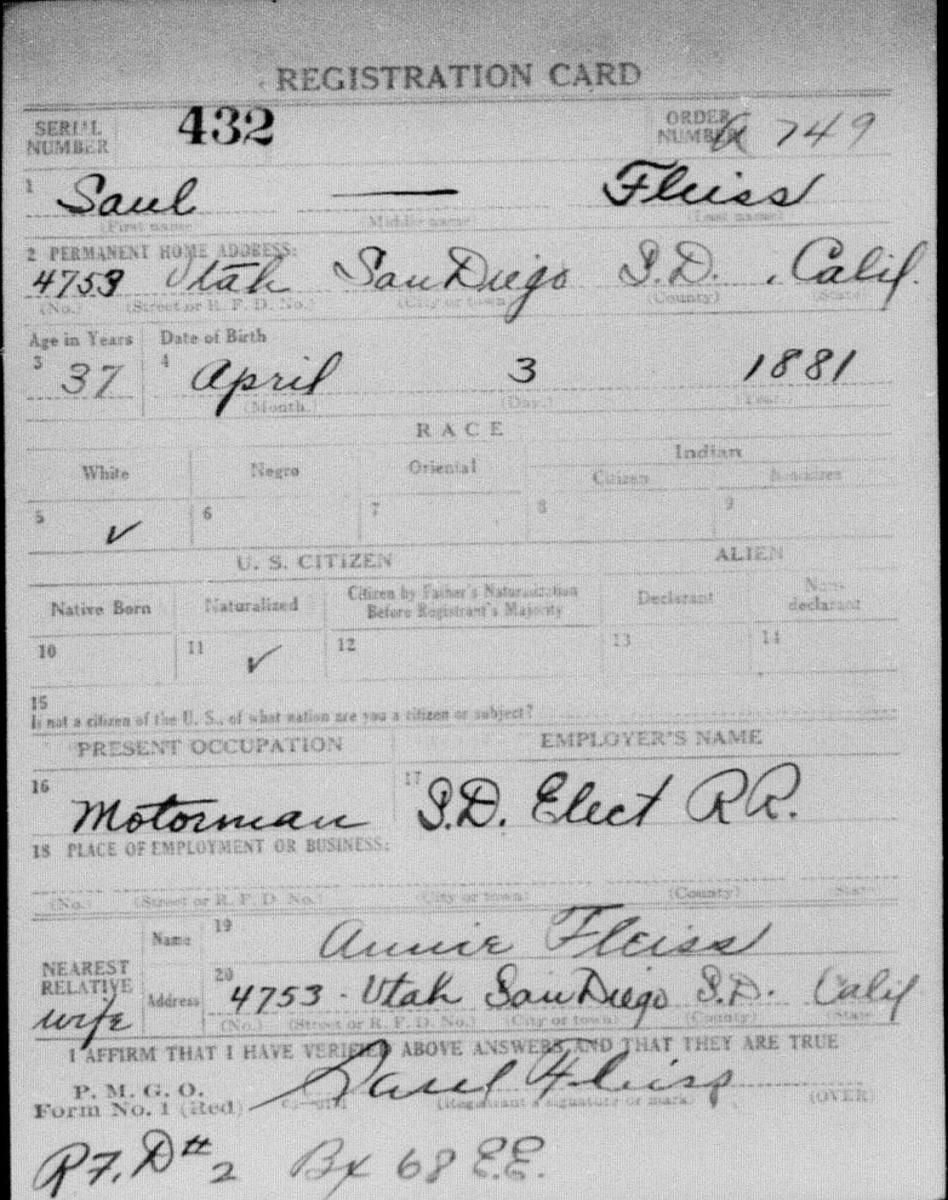 REGISTRATION CARD
SERIAL NUMBER 432 ORDER NUMBER A 749
1 Saul — Fleiss
(First name) (Middle name) (Last name)
2 PERMANENT HOME ADDRESS:
4753 Utah San Diego S.D. Calif.
(No.) (Street or R. F. D. No.) (City or town) (County) (State)
Age in Years Date of Birth
3 37 4 April 3 1881
(Month.) (Day.) (Year.)
RACE
White Negro Oriental Indian
Citizen Noncitizen
5 ✓ 6 7 8 9
U. S. CITIZEN ALIEN
Native Born Naturalized Citizen by Father's Naturalization Before Registrant's Majority Declarant Non-declarant
10 11 ✓ 12 13 14
15
If not a citizen of the U. S., of what nation are you a citizen or subject?
PRESENT OCCUPATION EMPLOYER'S NAME
16 Motorman 17 S.D. Elect RR.
18 PLACE OF EMPLOYMENT OR BUSINESS:
(No.) (Street or R. F. D. No.) (City or town) (County) (State)
NEAREST RELATIVE wife Name 19 Annie Fleiss
Address 20 4753 - Utah San Diego S.D. Calif
(No.) (Street or R. F. D. No.) (City or town) (County) (State)
I AFFIRM THAT I HAVE VERIFIED ABOVE ANSWERS AND THAT THEY ARE TRUE
P. M. G. O.
Form No. 1 (Red) Saul Fleiss
(Registrant's signature or mark) (OVER)
R F. D # 2 Bx 68 E.E.